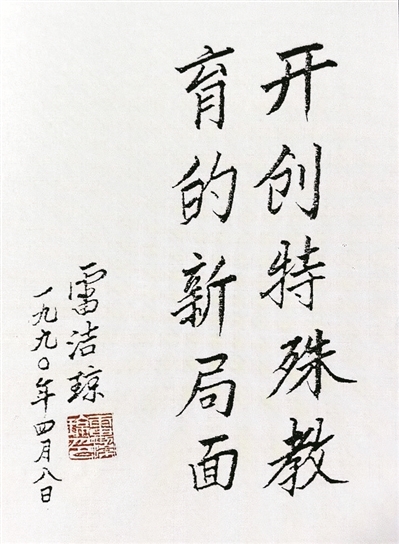 开创特殊教
育的新局面
雷洁琼
一九九〇年四月八日